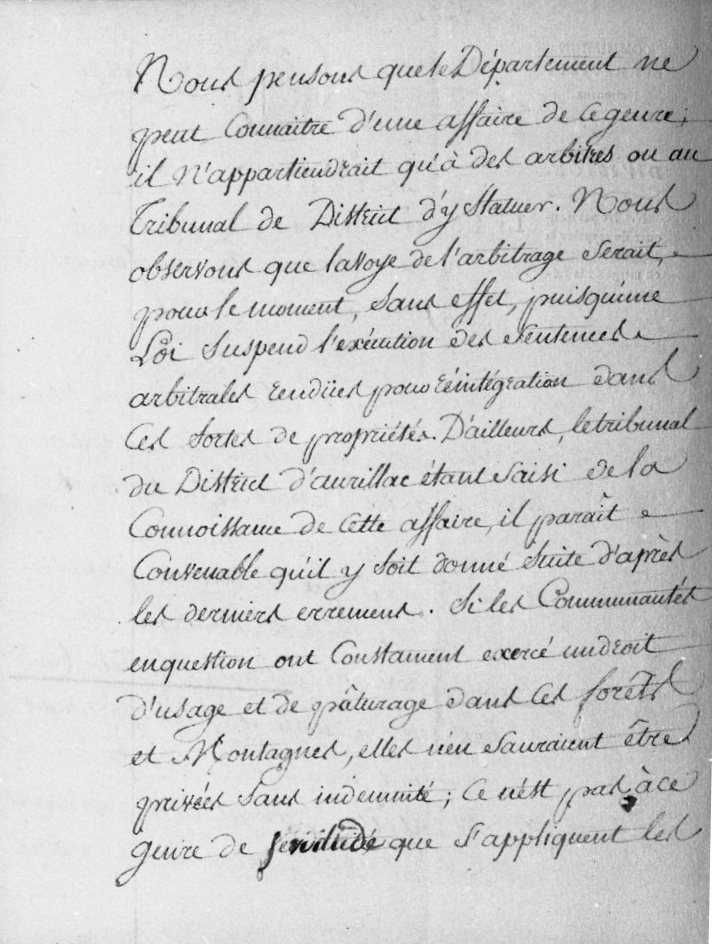 Nous pensons que le Département ne
peut Connaitre d'une affaire de ce genre;
il n'appartiendrait qu'à des arbitres ou au
Tribunal de District d'y Statuer. Nous
observons que la voye de l'arbitrage serait,
pour le moment, sans effet, puisqu'une
Loi suspend l'exécution des sentences
arbitrales rendües pour réintégration dans
ces sortes de propriétés. D'ailleurs, le tribunal
du District d'aurillac étant saisi de la
Connoissance de cette affaire, il paraît
Convenable qu'il y soit donné suite d'après
les derniers erremens. Si les Communautés
en question ont Constament exercé un droit
d'usage et de pâturage dans ces forêts
et Montagnes, elles n'en sauraient être
privées sans indemnité; ce n'est pas à ce
genre de servitude que s'appliquent les